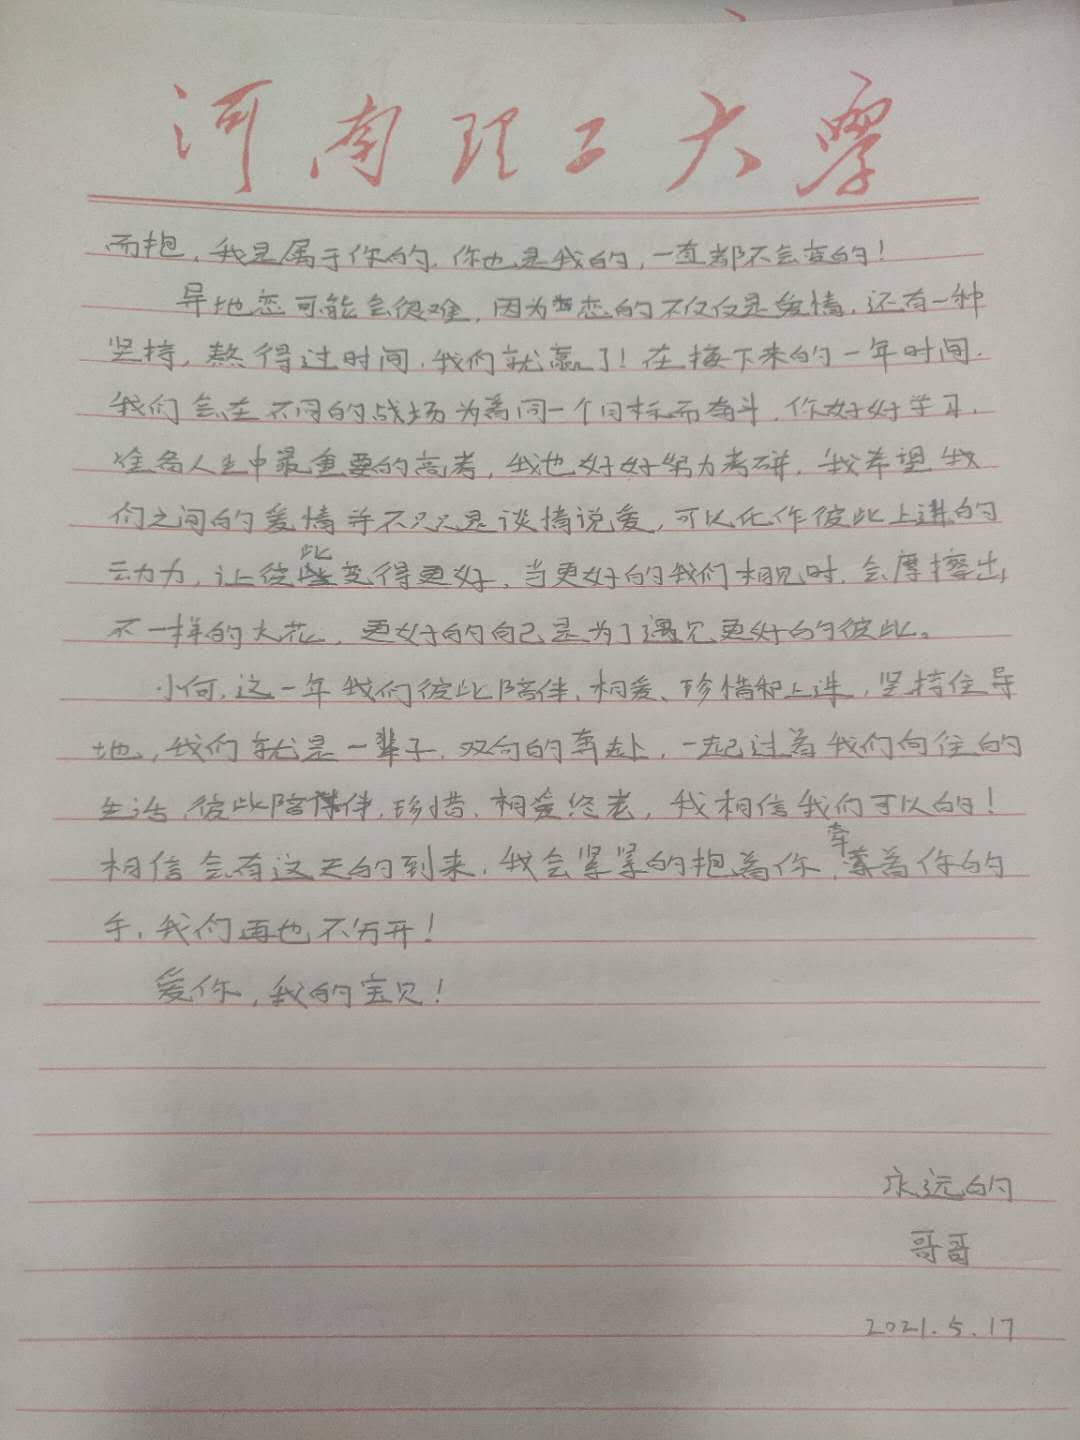 河南理工大學
而抱，我是属于你的，你也是我的，一直都不会变的！
异地恋可能会很难，因为恋的不仅仅是爱情，还有一种
坚持，熬得过时间，我们就赢了！在接下来的一年时间，
我们会在不同的战场为着同一个目标而奋斗，你好好学习，
准备人生中最重要的高考，我也好好努力考研，我希望我
们之间的爱情并不只只是谈情说爱，可以化作彼此上进的
动力，让彼此变得更好，当更好的我们相见时，会摩擦出
不一样的火花，更好的自己是为了遇见更好的彼此。
小何，这一年我们彼此陪伴、相爱、珍惜和上进，坚持住异
地，我们就是一辈子，双向的奔赴，一起过着我们向往的
生活，彼此陪伴，珍惜、相爱终老，我相信我们可以的！
相信会有这天的到来，我会紧紧的抱着你，牵着你的
手，我们再也不分开！
爱你，我的宝贝！
永远的
哥哥
2021.5.17